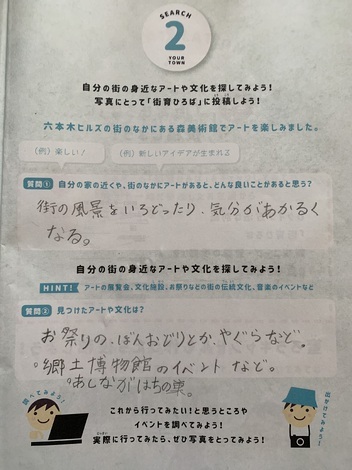 SEARCH
2
YOUR
TOWN
自分の街の身近なアートや文化を探してみよう!
写真にとって「街育ひろば」に投稿しよう!
六本木ヒルズの街のなかにある森美術館でアートを楽しみました。
(例)楽しい! (例)新しいアイデアが生まれる
質問① 自分の家の近くや、街のなかにアートがあると、どんな良いことがあると思う?
街の風景をいろどったり、気分があかるく
なる。
自分の街の身近なアートや文化を探してみよう!
HINT! アートの展覧会、文化施設、お祭りなどの街の伝統文化、音楽のイベントなど
質問② 見つけたアートや文化は?
お祭りの、ぼんおどりとか、やぐらなど。
。郷土博物館のイベントなど。
。あしながばちの巣。
調べてみよう!
出かけてみよう!
これから行ってみたい!と思うところや
イベントを調べてみよう!
実際に行ってみたら、ぜひ写真をとってみよう!